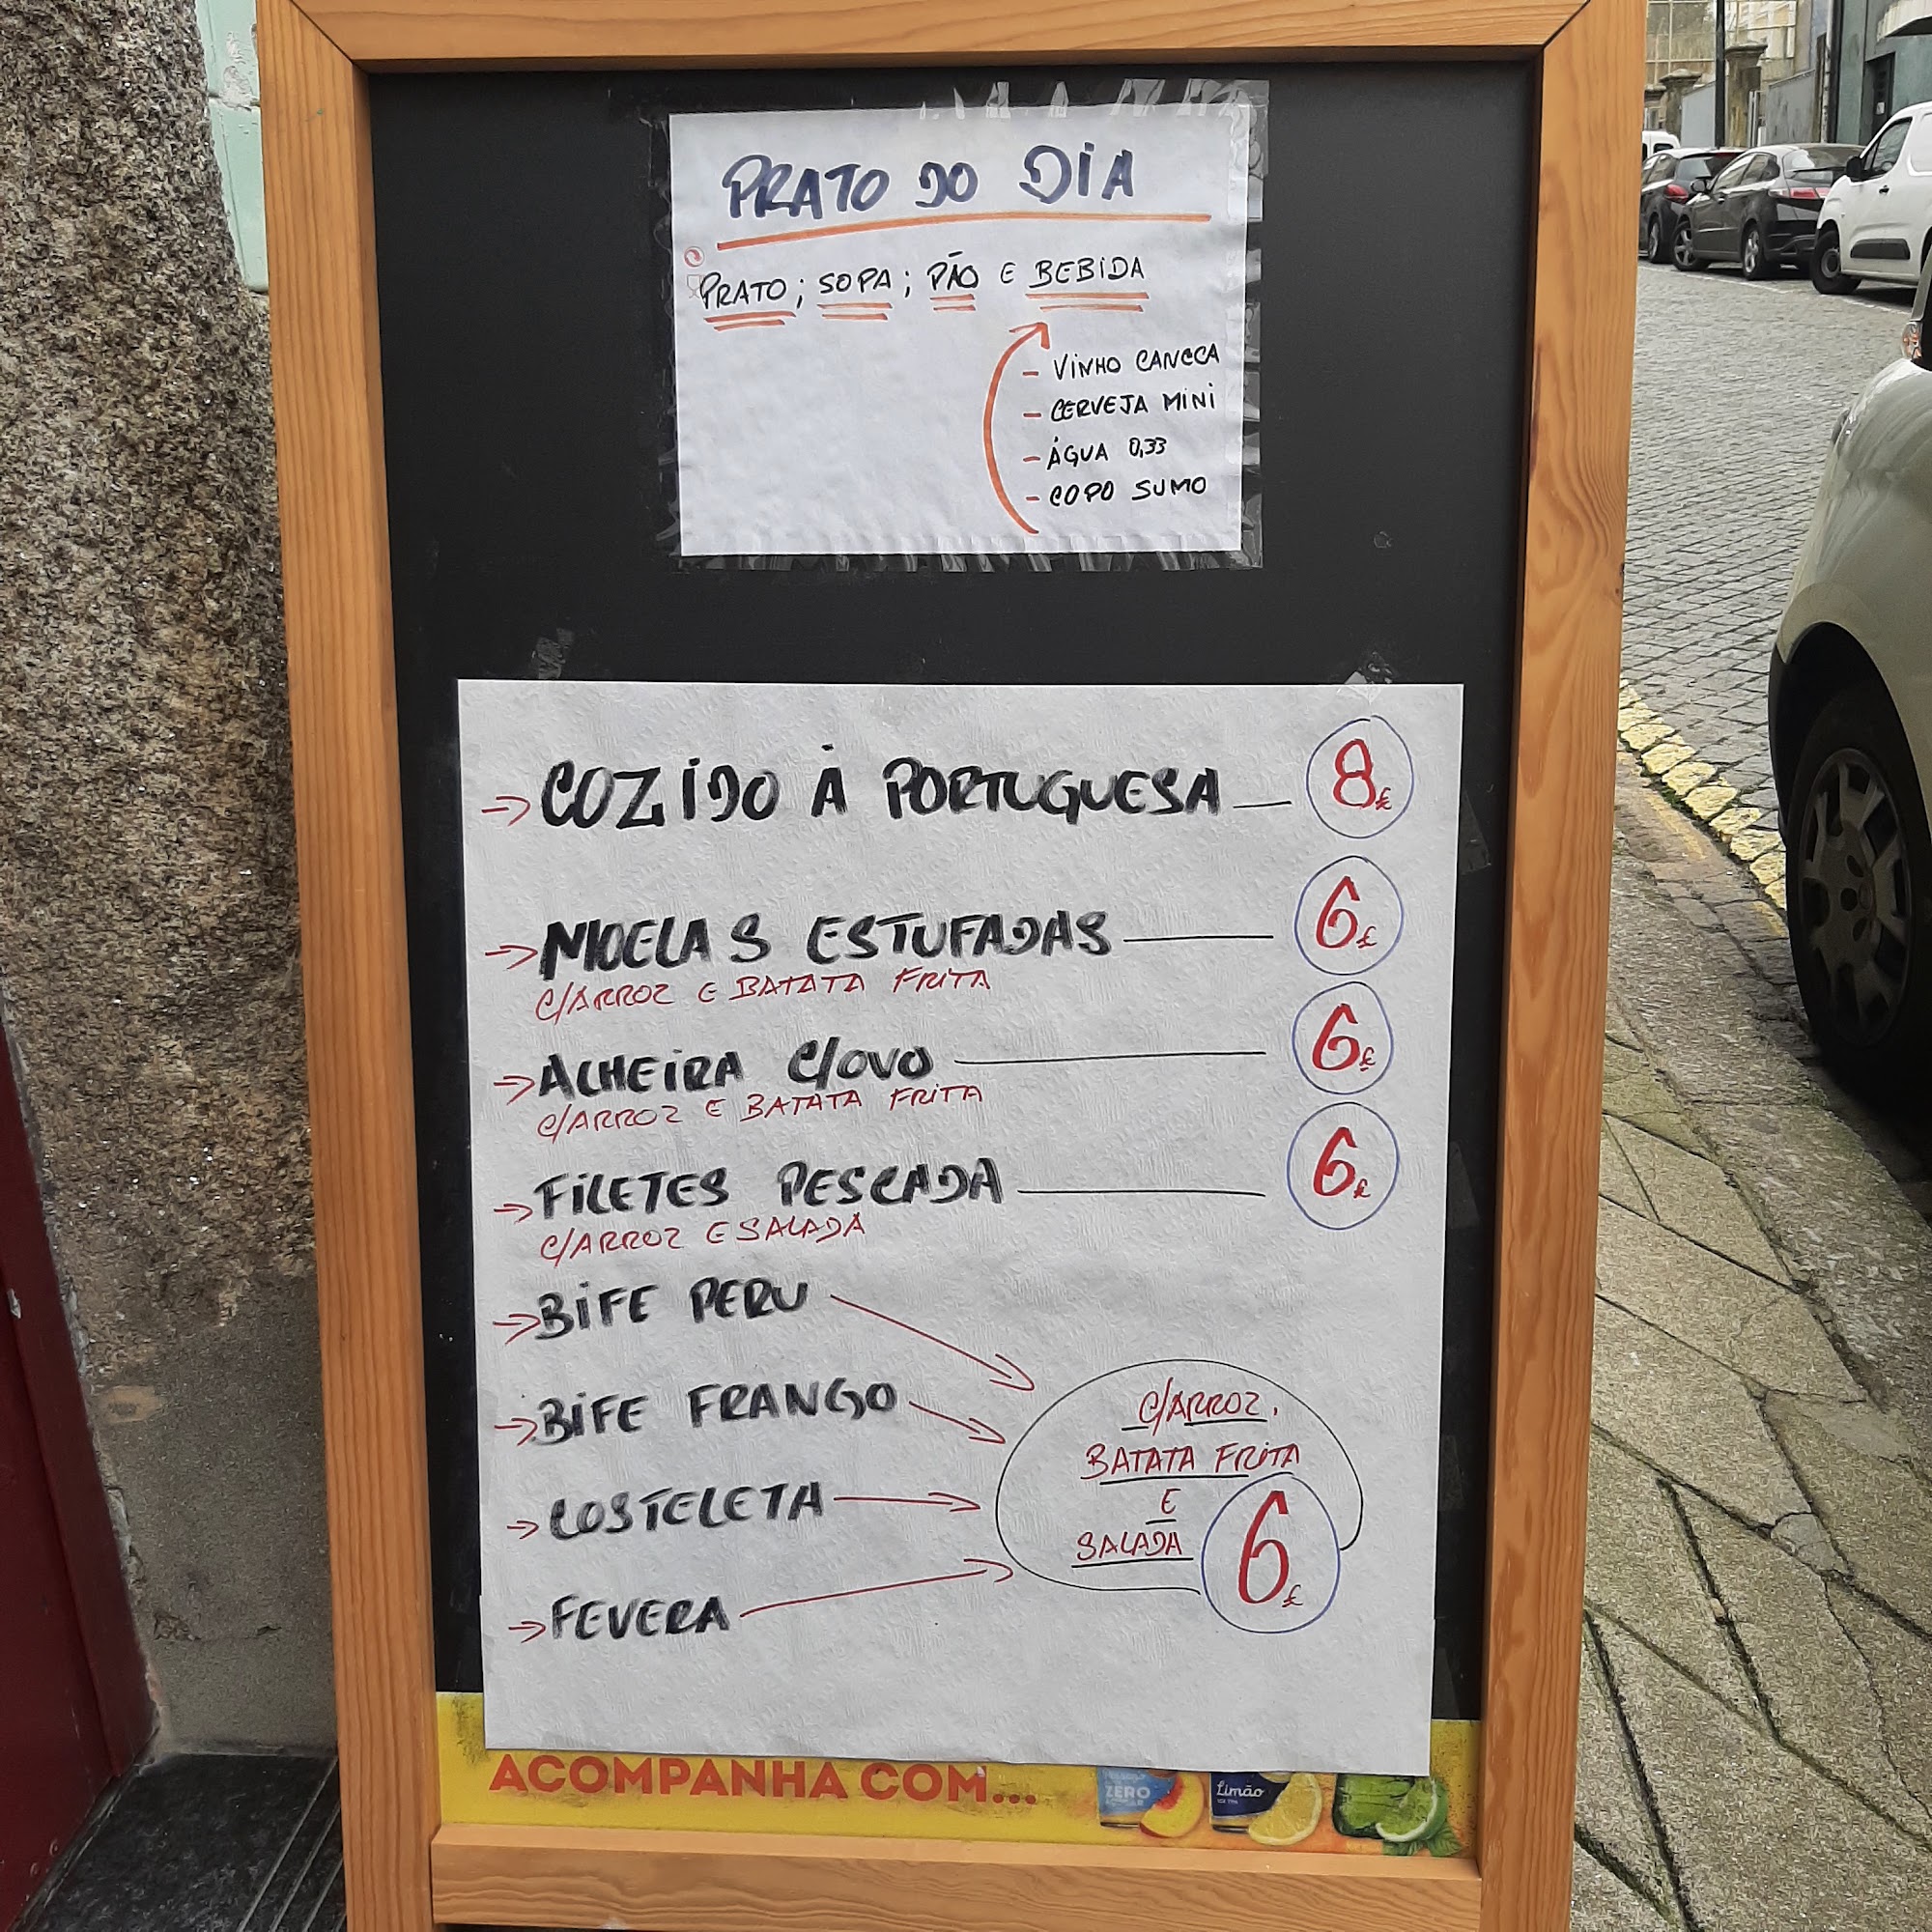 PRATO DO DIA
PRATO; SOPA; PÃO E BEBIDA
- VINHO CANECA
- CERVEJA MINI
- ÁGUA 0,33
- COPO SUMO
→ COZIDO À PORTUGUESA — 8€
→ MOELAS ESTUFADAS — 6€
C/ARROZ E BATATA FRITA
→ ALHEIRA C/OVO — 6€
C/ARROZ E BATATA FRITA
→ FILETES PESCADA — 6€
C/ARROZ E SALADA
→ BIFE PERU
→ BIFE FRANGO
→ COSTELETA
→ FEVERA
C/ARROZ,
BATATA FRITA
E
SALADA 6€
ACOMPANHA COM...
ZERO
Limão